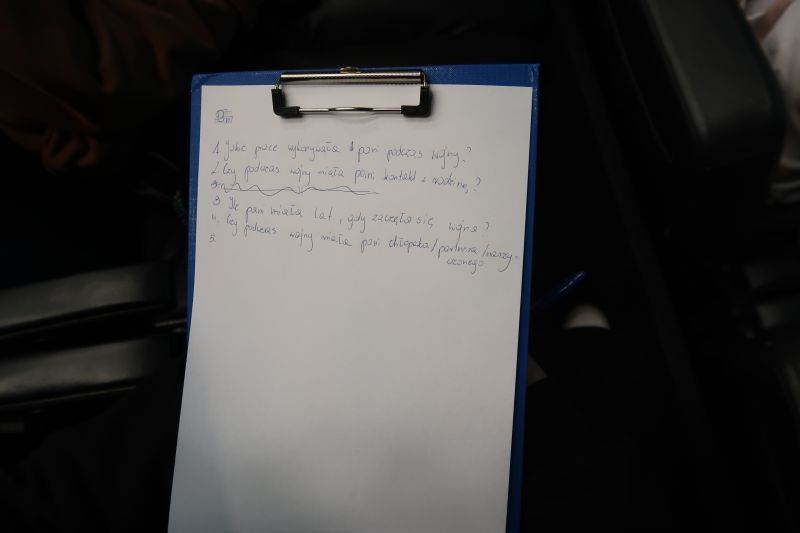 1. Jakie prace wykonywała pani podczas wojny?
2. Czy podczas wojny miała pani kontakt z rodziną?
3. Ile pani miała lat, gdy zaczęła się wojna?
4. Czy podczas wojny miała pani chłopaka/partnera/narzy-
czonego
5.